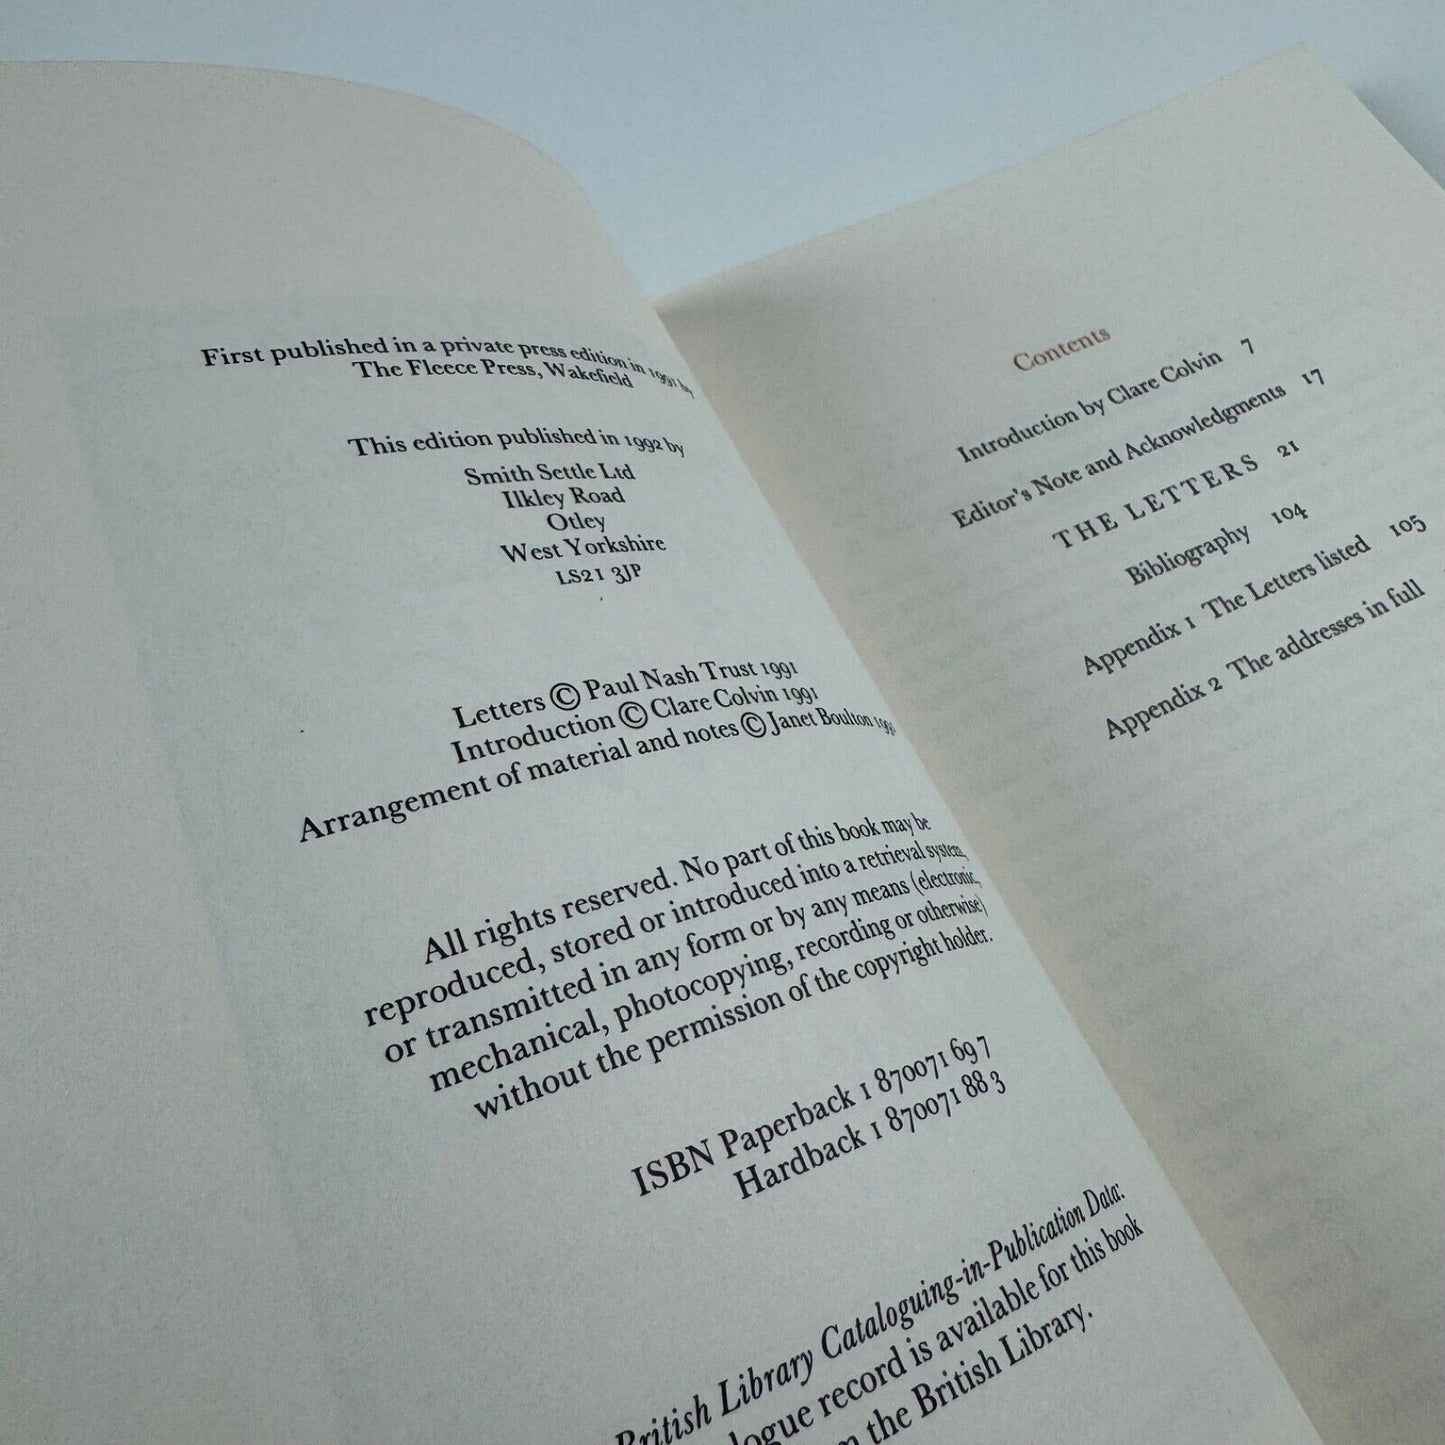 First published in a private press edition in 1991 by
The Fleece Press, Wakefield
This edition published in 1992 by
Smith Settle Ltd
Ilkley Road
Otley
West Yorkshire
LS21 3JP
Letters © Paul Nash Trust 1991
Introduction © Clare Colvin 1991
Arrangement of material and notes © Janet Boulton 1991
All rights reserved. No part of this book may be
reproduced, stored or introduced into a retrieval system,
or transmitted in any form or by any means (electronic,
mechanical, photocopying, recording or otherwise)
without the permission of the copyright holder.
ISBN Paperback 1 870071 69 7
Hardback 1 870071 88 3
British Library Cataloguing-in-Publication Data:
logue record is available for this book
the British Library.
Contents
Introduction by Clare Colvin 7
Editor's Note and Acknowledgments 17
THE LETTERS 21
Bibliography 104
Appendix 1 The Letters listed 105
Appendix 2 The addresses in full